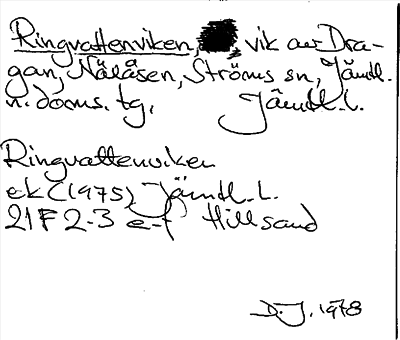 Ringvattenviken, vik av Dra-
gan, Näläsen, Ströms sn, Jämtl.
n. doms. tg, Jämtl. l.
Ringvattenviken
ek (1975) Jämtl. l.
21F 2-3 e-f Hillsand
D. J. 1978